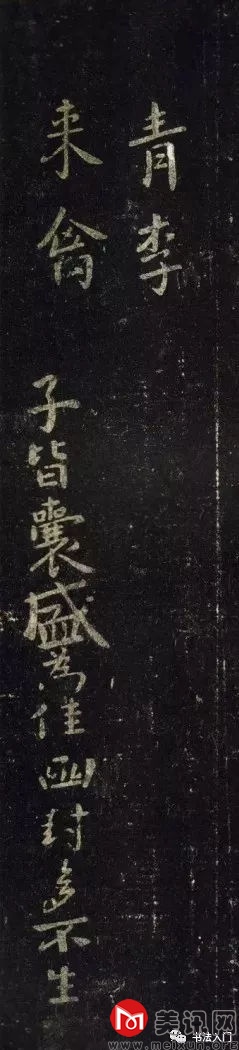 青李
来禽
子皆囊盛为佳函封多不生
美讯网
www.meixun.org
书法入门